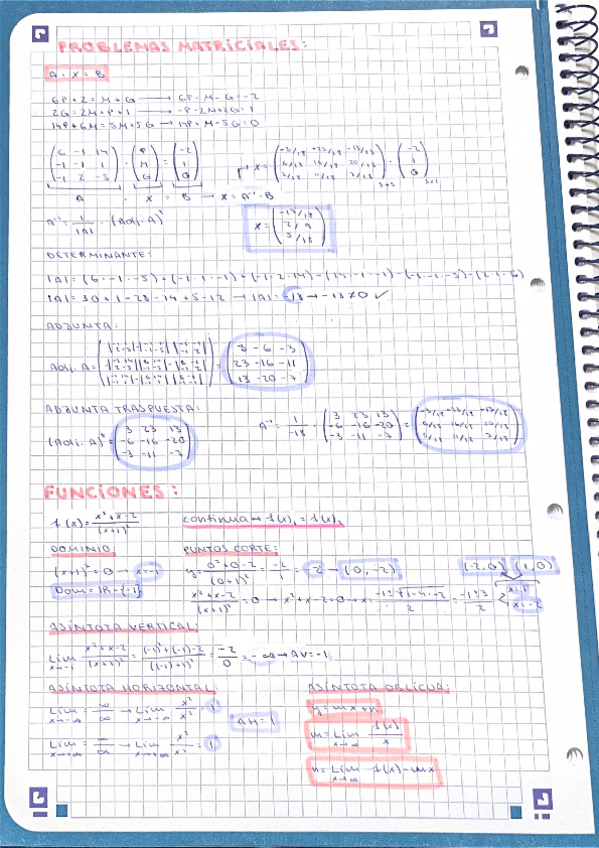 PROBLEMAS MATRICIALES:
A · X = B
6P + 2 = M + G → 6P - M - G = -2
2G = 2M + P + 1 → -P - 2M + 2G = 1
14P + 6M = 5M + 5G → 14P + M - 5G = 0
(6 -1 14 / -1 -1 1 / -1 2 -5) · (P / M / G) = (-2 / 1 / 0)
A · X = B → X = A⁻¹ · B
A⁻¹ = 1/|A| · (Adj. A)ᵗ
DETERMINANTE:
|A| = (6·-1·-5) + (-1·1·-1) + (-1·2·14) - (14·-1·-1) - (-1·-1·-5) - (2·1·6)
|A| = 30 + 1 - 28 - 14 + 5 - 12 → |A| = -18 → -18 ≠ 0 ✓
ADJUNTA:
Adj. A = (3 -6 -3 / 23 -16 -11 / 13 -20 -7)
ADJUNTA TRASPUESTA:
(Adj. A)ᵗ = (3 23 13 / -6 -16 -20 / -3 -11 -7)
A⁻¹ = 1/-18 · (3 23 13 / -6 -16 -20 / -3 -11 -7) = (-3/18 -23/18 -13/18 / 6/18 16/18 20/18 / 3/18 11/18 7/18)
FUNCIONES:
f(x) = x² + x - 2 / (x+1)²
continua → f(x)₁ = f(x)₂
DOMINIO:
(x+1)² = 0 → x = -1
Dom = ℝ - {-1}
PUNTOS CORTE:
y = 0² + 0 - 2 / (0+1)² = -2/1 = -2 → (0, -2)
(-2, 0) (1, 0)
x² + x - 2 / (x+1)² = 0 → x² + x - 2 = 0 → x = = -1 ± 3 / 2
x = 1
x = -2
ASÍNTOTA VERTICAL:
Lim x→-1 x² + x - 2 / (x+1)² = (-1)² + (-1) - 2 / ((-1)+1)² = -2/0 = -∞ → AV = -1
ASÍNTOTA HORIZONTAL:
Lim x→-∞ = ∞/∞ → Lim x→-∞ x²/x² = 1
AH = 1
Lim x→∞ = ∞/∞ → Lim x→∞ x²/x² = 1
ASÍNTOTA OBLICUA:
y = mx + n
m = Lim x→∞ f(x)/x
n = Lim x→∞ f(x) - mx